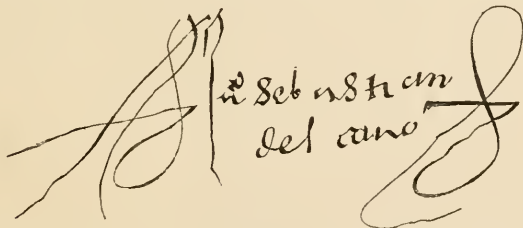 Ju° sebastian
del cano